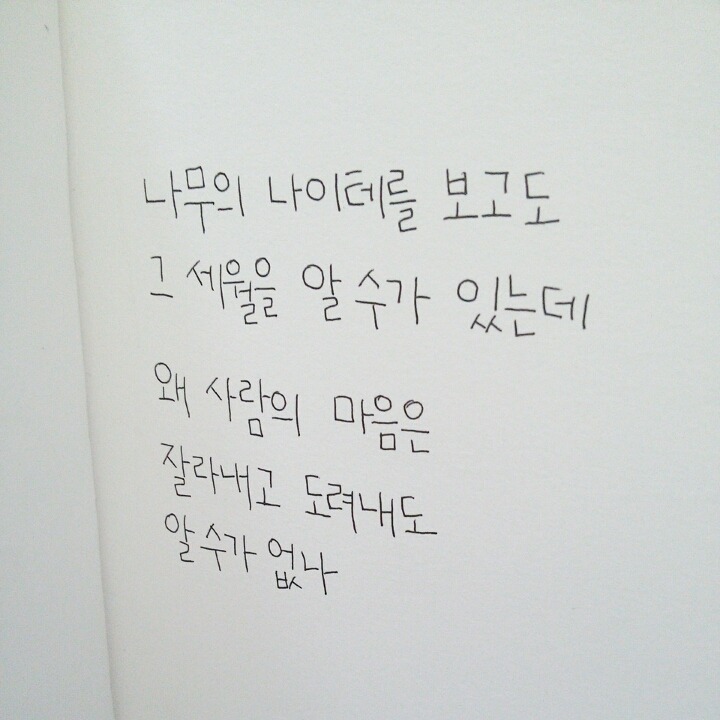 나무의 나이테를 보고도
그 세월을 알 수가 있는데
왜 사람의 마음은
잘라내고 도려내도
알 수가 없나